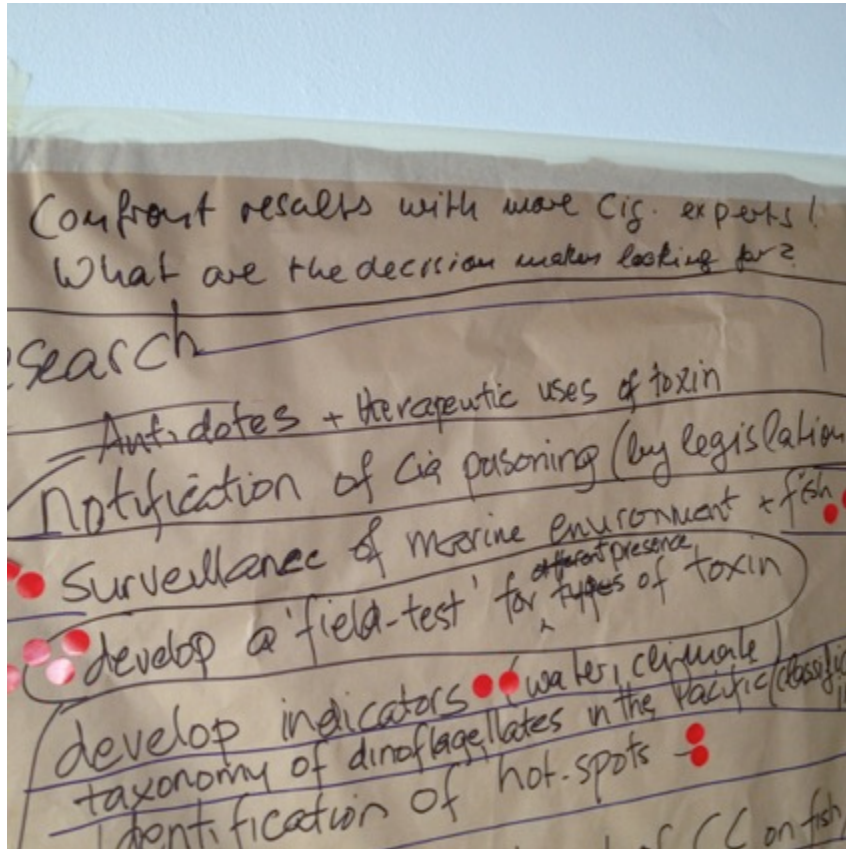 Confront results with more Cig. experts!
What are the decision makers looking for?
search
Antidotes + therapeutic uses of toxin
Notification of Cig poisoning (by legislation
Surveillance of marine environment + fish
different presence
develop a 'field-test' for types of toxin
develop indicators (water, climate)
taxonomy of dinoflagellates in the Pacific (classific
identification of hot-spots -
of CC on fish